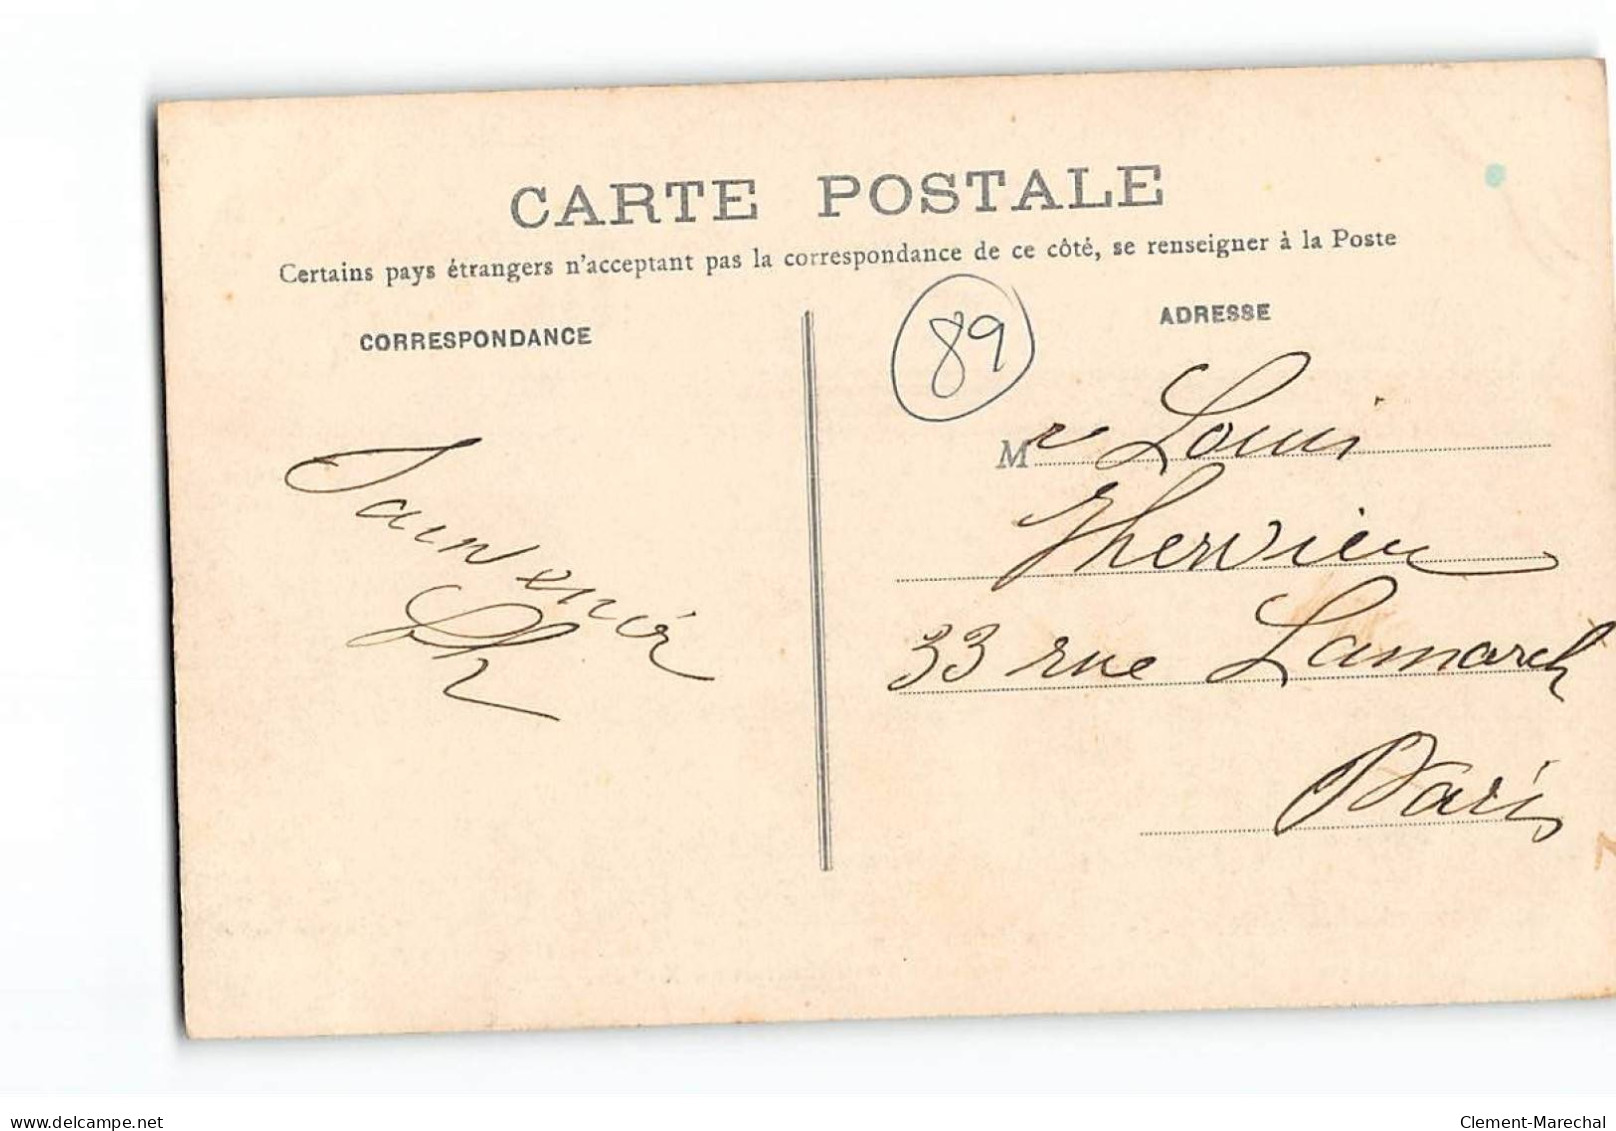 CARTE POSTALE
Certains pays étrangers n'acceptant pas la correspondance de ce côté, se renseigner à la Poste
CORRESPONDANCE
ADRESSE
89
Mr Louis
Thervieu
33 rue Lamarck
Paris
Souvenir
delcampe.net
Clement-Marechal